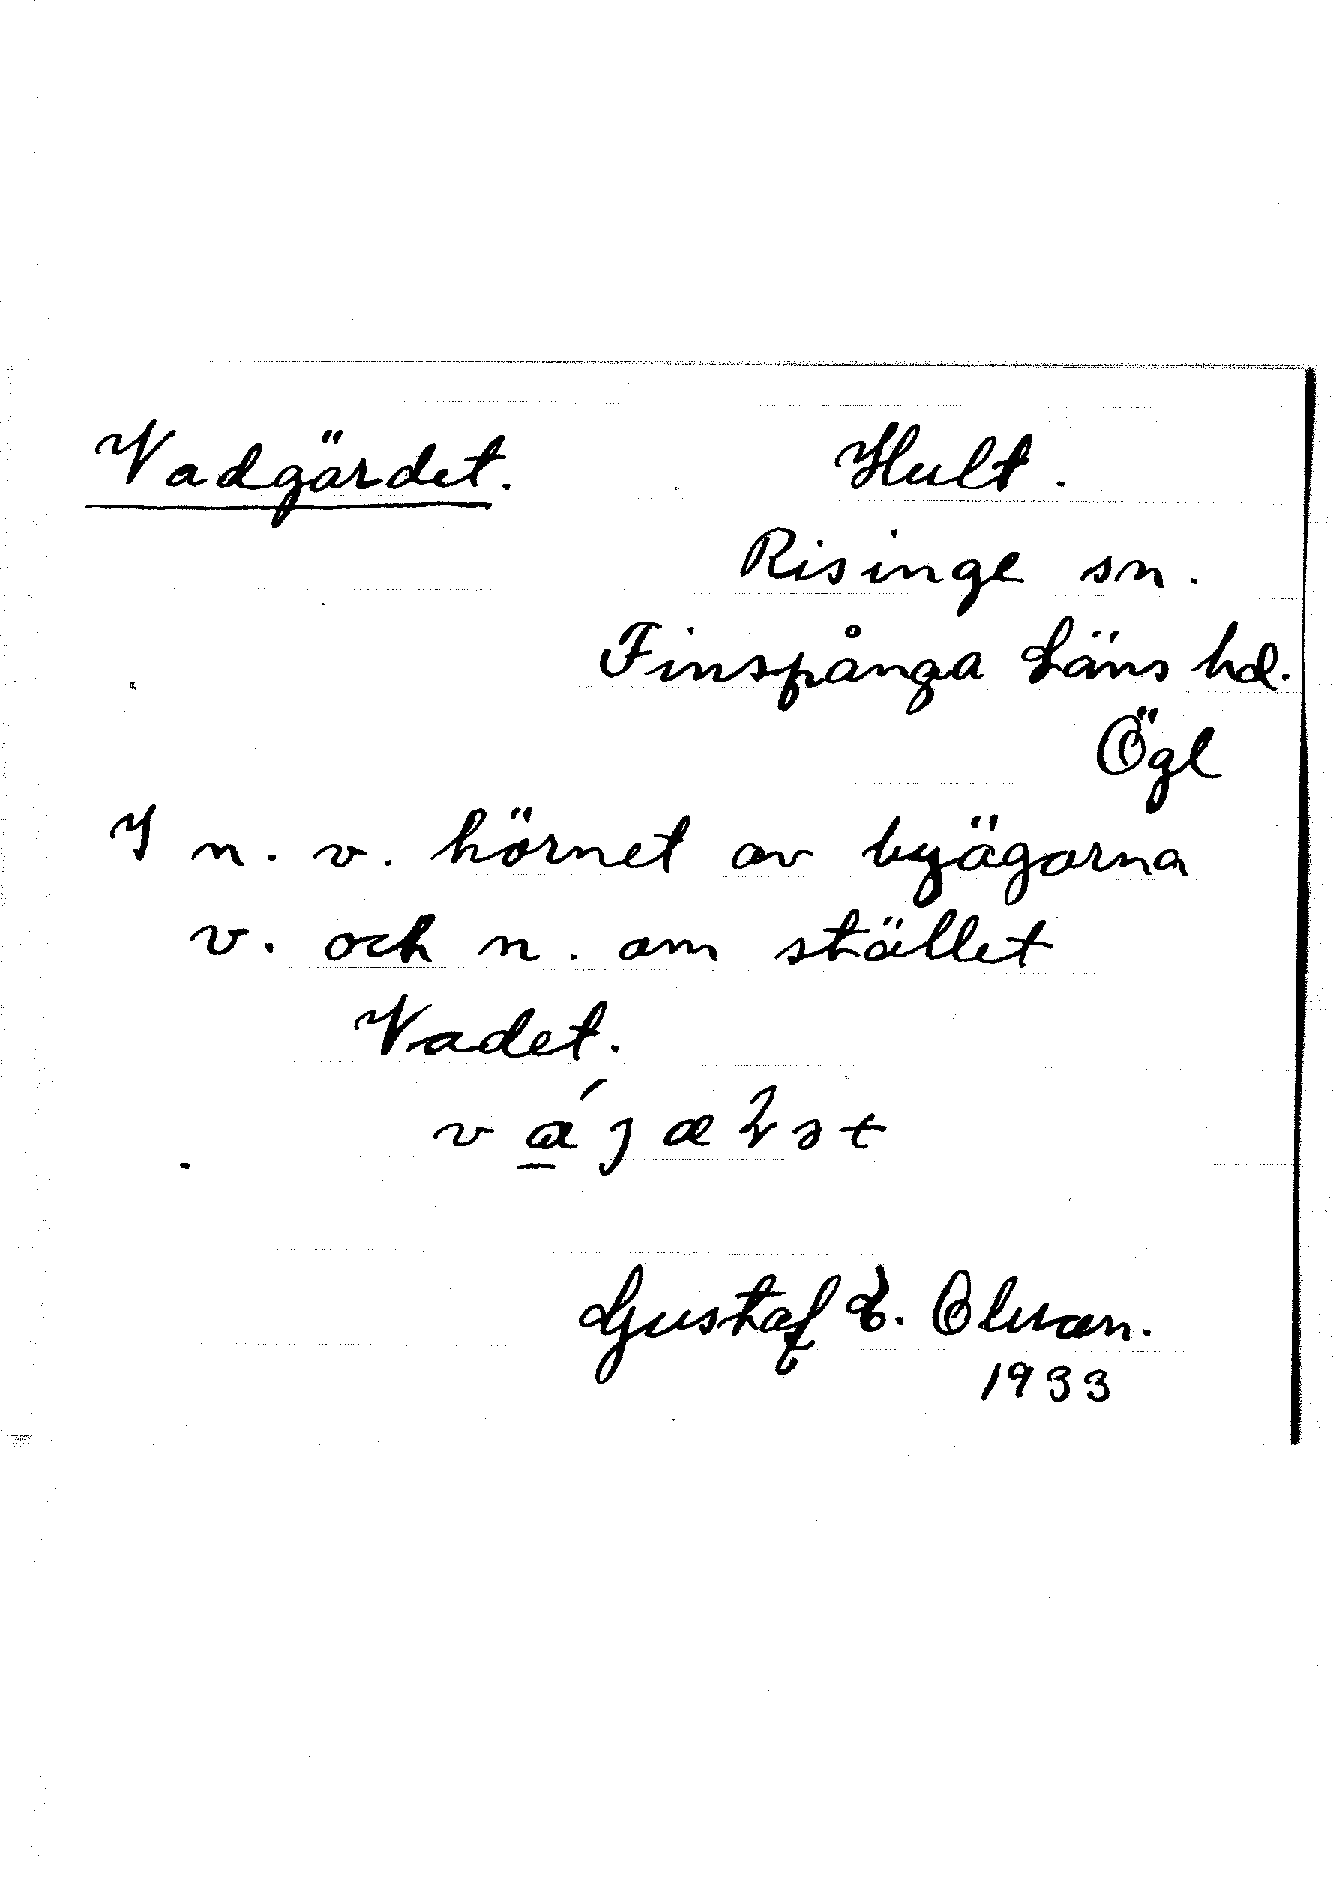 Vadgärdet. Hult.
Risinge sn.
Finspånga Läns hd.
Ögl
I n. v. hörnet av byägorna
v. och n. om stället
Vadet.
Gustaf E. Olsson.
1933